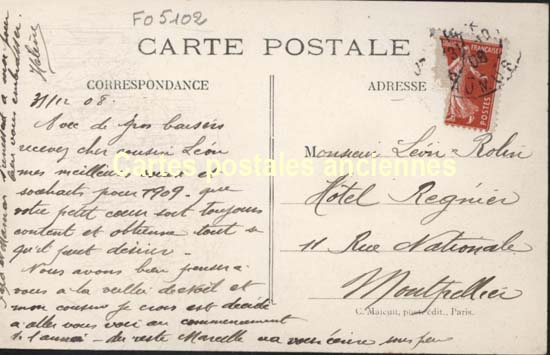 FO5102
CARTE POSTALE
CORRESPONDANCE
ADRESSE
31/12 08.
Avec de gros baisers
recevez cher cousin Léon
mes meilleurs vœux et
souhaits pour 1909. que
votre petit cœur soit toujours
content et obtienne tout ce
qu'il peut désirer.
Nous avons bien pensé à
vous à la veillée de Noël et
mon cousin je crois est décidé
à aller vous voir au commencement
de l'année. du reste Marcelle va vous écrire sous peu
bien vous embrasser.
Valérie
Monsieur Léon Rolin
Hôtel Régnier
11 Rue Nationale
Montpellier
C. Malcuit, phot. édit., Paris.
Cartes postales anciennes
FRANÇAISE
POSTES
08